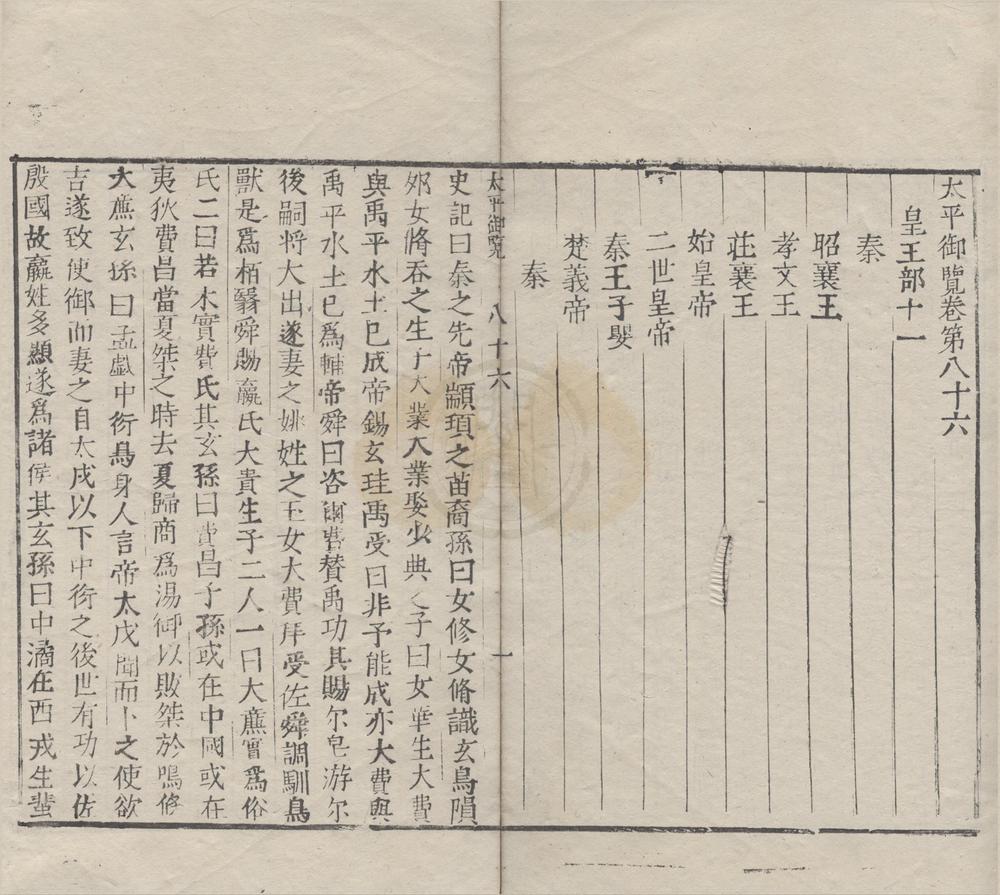 太平御覽卷第八十六
皇王部十一
秦
昭襄王
孝文王
莊襄王
始皇帝
二世皇帝
秦王子嬰
楚義帝
秦
太平御覽 八十六 一
史記曰秦之先帝顓頊之苗裔孫曰女修女脩識玄鳥隕
卵女脩吞之生子大業大業娶少典之子曰女華生大費
與禹平水土已成帝錫玄珪禹受曰非予能成亦大費與
禹平水土已爲輔帝舜曰咨爾費賛禹功其賜尔皂游尔
後嗣將大出遂妻之姚姓之玉女大費拜受佐舜調馴鳥
獸是爲栢翳舜賜嬴氏大貴生子二人一曰大廉實爲俗
氏二曰若木實費氏其玄孫曰費昌子孫或在中國或在
夷狄費昌當夏桀之時去夏歸商爲湯御以敗桀於鳴條
大廉玄孫曰孟戯中衍鳥身人言帝太戊聞而卜之使欲
吉遂致使御而妻之自太戊以下中衍之後世有功以佐
殷國故嬴姓多顯遂爲諸侯其玄孫曰中潏在西戎生蜚